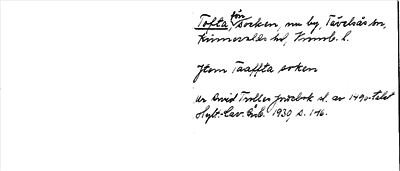 Tofta, förr socken, nu by, Tävelsås sn,
Kinnevalds hd, Kronob. l.
Jtem Taaffta soken
ur Arvid Trolles jordebok sl. av 1490-talet
Hylt.-Cav. Årsb. 1930, s. 146.